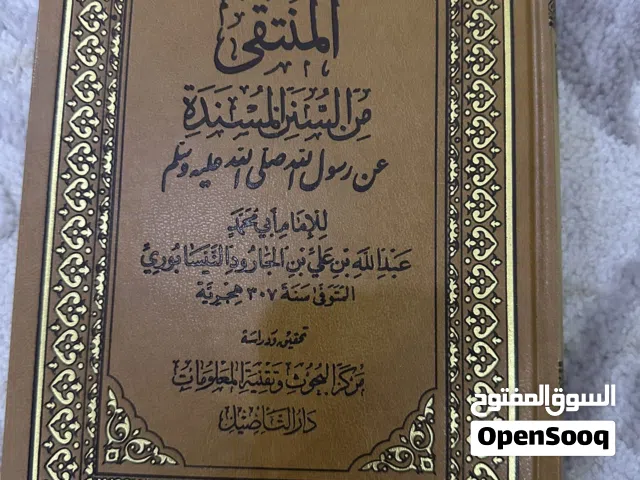 المنتقى
من السنن المسندة
عن رسول الله صلى الله عليه وسلم
للإمام أبي محمد
عبد الله بن علي بن الجارود النيسابوري
المتوفى سنة ٣٠٧ هجرية
تحقيق ودراسة
مركز البحوث وتقنية المعلومات
دار التأصيل
السوق المفتوح
OpenSooq